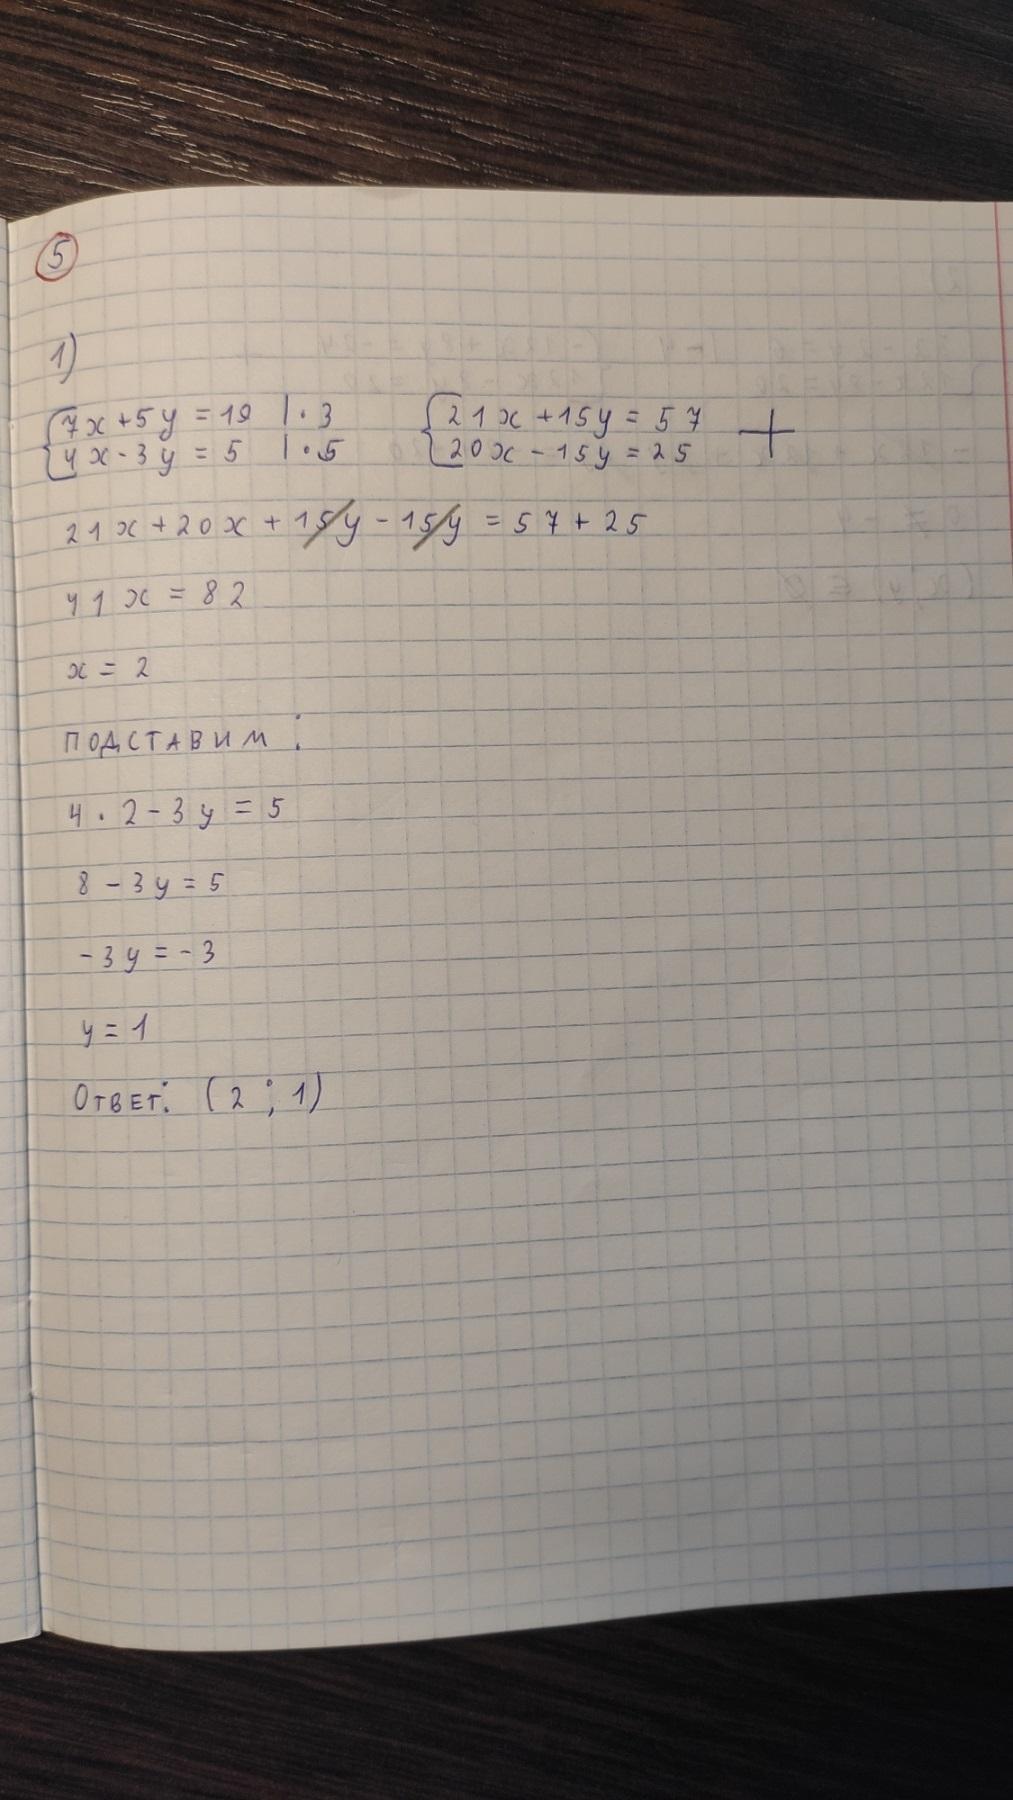 5
1)
{7x+5y=19 |·3 {21x+15y=57 +
{4x-3y=5 |·5 {20x-15y=25
21x+20x+15y-15y=57+25
41x=82
x=2
ПОДСТАВИМ:
4·2-3y=5
8-3y=5
-3y=-3
y=1
ОТВЕТ: (2;1)